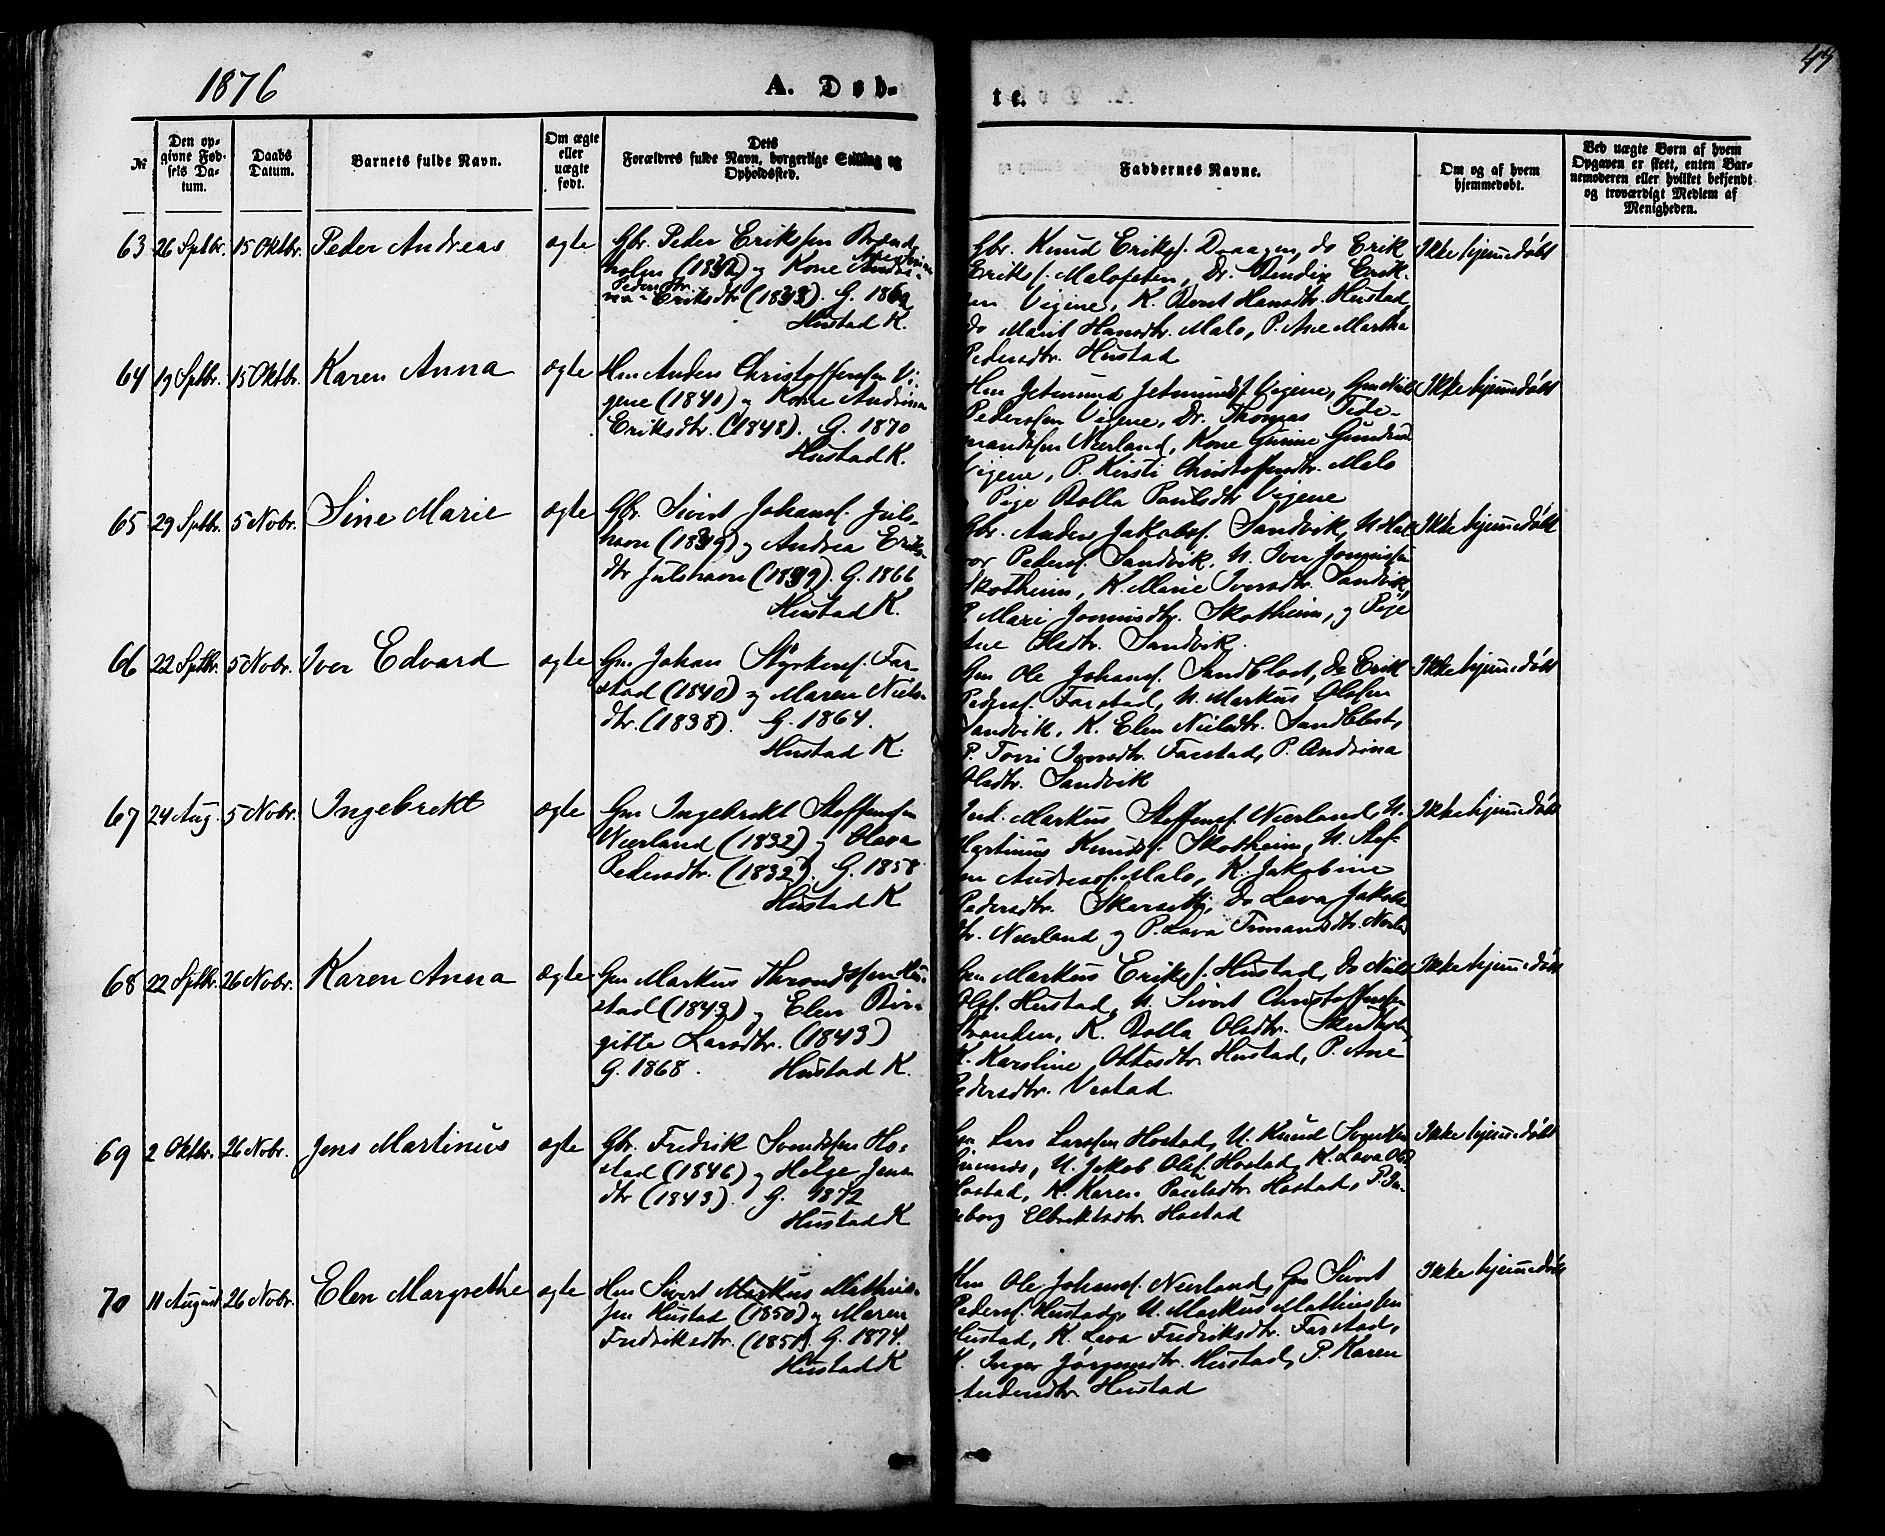 1876
A. Døb-
te.
№
Den op-
givne Fød-
sels Da-
tum.
Daabs
Datum.
Barnets fulde Navn.
Om ægte
eller
uægte
født.
Dets
Forældres fulde Navn, borgerlige Stilling og
Opholdssted.
Faddernes Navne.
Om og af hvem
hjemmedøbt.
Ved uægte Børn af hvem
Opgaven er skeet, enten Bar-
nemoderen eller hvilket bekjendt
og troværdigt Medlem af
Menigheden.
63 26 Sptbr. 15 Oktbr. Peder Andreas ægte
Gbr. Peder Erikssen
og Kone
G.
Hustad K.
Gbr. Knud Eriks. Draagen, do Erik
Eriks. Malofeten, Dr. Erik-
Vigene, K. Hansdtr. Hustad,
do Marit Hansdtr. Malo, P. Ane Martha
Pedersdtr. Hustad
Ikke hjemmedøbt
64 19 Sptbr. 15 Oktbr. Karen Anna ægte
Hm Anders Christoffersen Vi-
gene (1841) og Kone Andrina
Eriksdtr. (1848). G. 1870
Hustad K.
Hm Jetmund Jetmunds. Vigene, Gm Niels
Pederssen Vigene, Dr. Thomas Tide-
mandssen Nerland, Kone Gurine
Vigene, P. Kirsti Christoffersdtr. Malo
Pige Bolla Paulsdtr Vigene
Ikke hjemmedøbt
65 29 Sptbr. 5 Novbr. Sine Marie ægte
Gbr. Sivert Johans. Juls-
havn og Andrea Eriks-
dtr Julshavn G. 1866
Hustad K.
Gbr. Anders Jakobs. Sandvik, U. Hal-
vor Peders. Sandvik, U. Iver
Skotheim, K. Marie Iversdtr. Sandvik,
P. Mari Skotheim, og Pige
Ane Olsdtr. Sandvik.
Ikke hjemmedøbt
66 22 Sptbr. 5 Novbr. Iver Edvard ægte
Gm Johan Styrkers. Far-
stad (1840) og Maren Niels-
dtr. (1838). G. 1864.
Hustad K.
Gm Ole Johans. Sandblost, do Erik
Peders. Farstad, U. Markus Olssen
Sandvik, K. Elen Nielsdtr. Sandblost,
P. Farstad, P. Andrina
Olsdtr. Sandvik
Ikke hjemmedøbt
67 24 Aug. 5 Novbr. Ingebrekt ægte
Gm Ingebrekt Steffensen
Nerland (1832) og Olava
Pedersdtr. (1832). G. 1858
Hustad K
Markus Steffens. Nerland, U.
Martinus Knuds. Skotheim, U. Stef-
fen Andreas. Malo, K. Jakobine
Pedersdtr. do Lava Jakobs-
dtr. Nerland og P. Lava
Ikke hjemmedøbt
68 22 Sptbr. 26 Novbr. Karen Anna ægte
Gm Markus Throndssen Hu-
stad (1843) og Elen Bir-
gitte Larsdtr. (1843)
G. 1868. Hustad K.
Gm Markus Eriks. Hustad, do Niels
Ols. Hustad, U. Sivert Christoffersen
Stranden, K. Bolla Olsdtr.
K. Karoline Ottesdtr. Hustad, P. Ane
Pedersdtr. Vestad
Ikke hjemmedøbt
69 2 Oktbr. 26 Novbr. Jens Martinus ægte
Gbr. Fredrik Svendssen Ho-
stad (1846) og Helge Jens-
dtr (1843). G. 1872
Hustad K
Gm Lars Larssen Hostad, U. Knud
U. Jakob Ols. Hostad, K. Lava Ols-
Hostad, K. Karen Paulsdtr. Hostad, P. In-
geborg Hostad
Ikke hjemmedøbt
70 11 August 26 Novbr. Elen Margrethe ægte
Hm Sivert Markus Mathias-
sen Hustad (1850) og Maren
Fredriksdtr. (1851) G. 1874.
Hustad K
Hm Ole Johans. Nerland, Gm Sivert
Peders. Hustad, U. Markus Mathiassen
Hustad, K. Lava Fredriksdtr. Farstad,
K. Inger Jørgensdtr. Hustad, P. Karen
Andersdtr. Hustad
Ikke hjemmedøbt